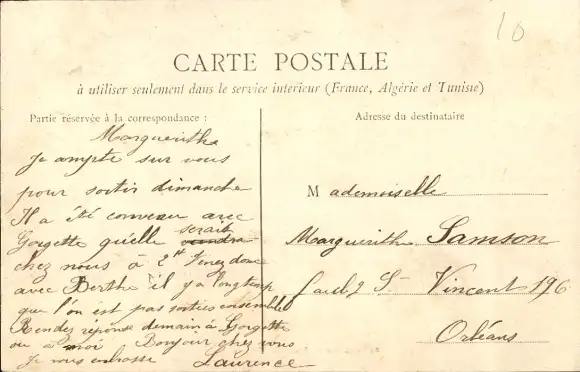 10
CARTE POSTALE
à utiliser seulement dans le service intérieur (France, Algérie et Tunisie)
Partie réservée à la correspondance :
Adresse du destinataire
Marguerithe
Je compte sur vous
pour sortir dimanche
Il a été convenu avec
Gorgette qu'elle serait
chez nous à 2h Venez donc
avec Berthe il y a longtemp
que l'on est pas sorties ensemble
Rendez réponse demain à Gorgette
ou à moi Bonjour chez vous
Je vous embrasse Laurence
Mademoiselle
Marguerithe Samson
St Vincent 196
Orléans